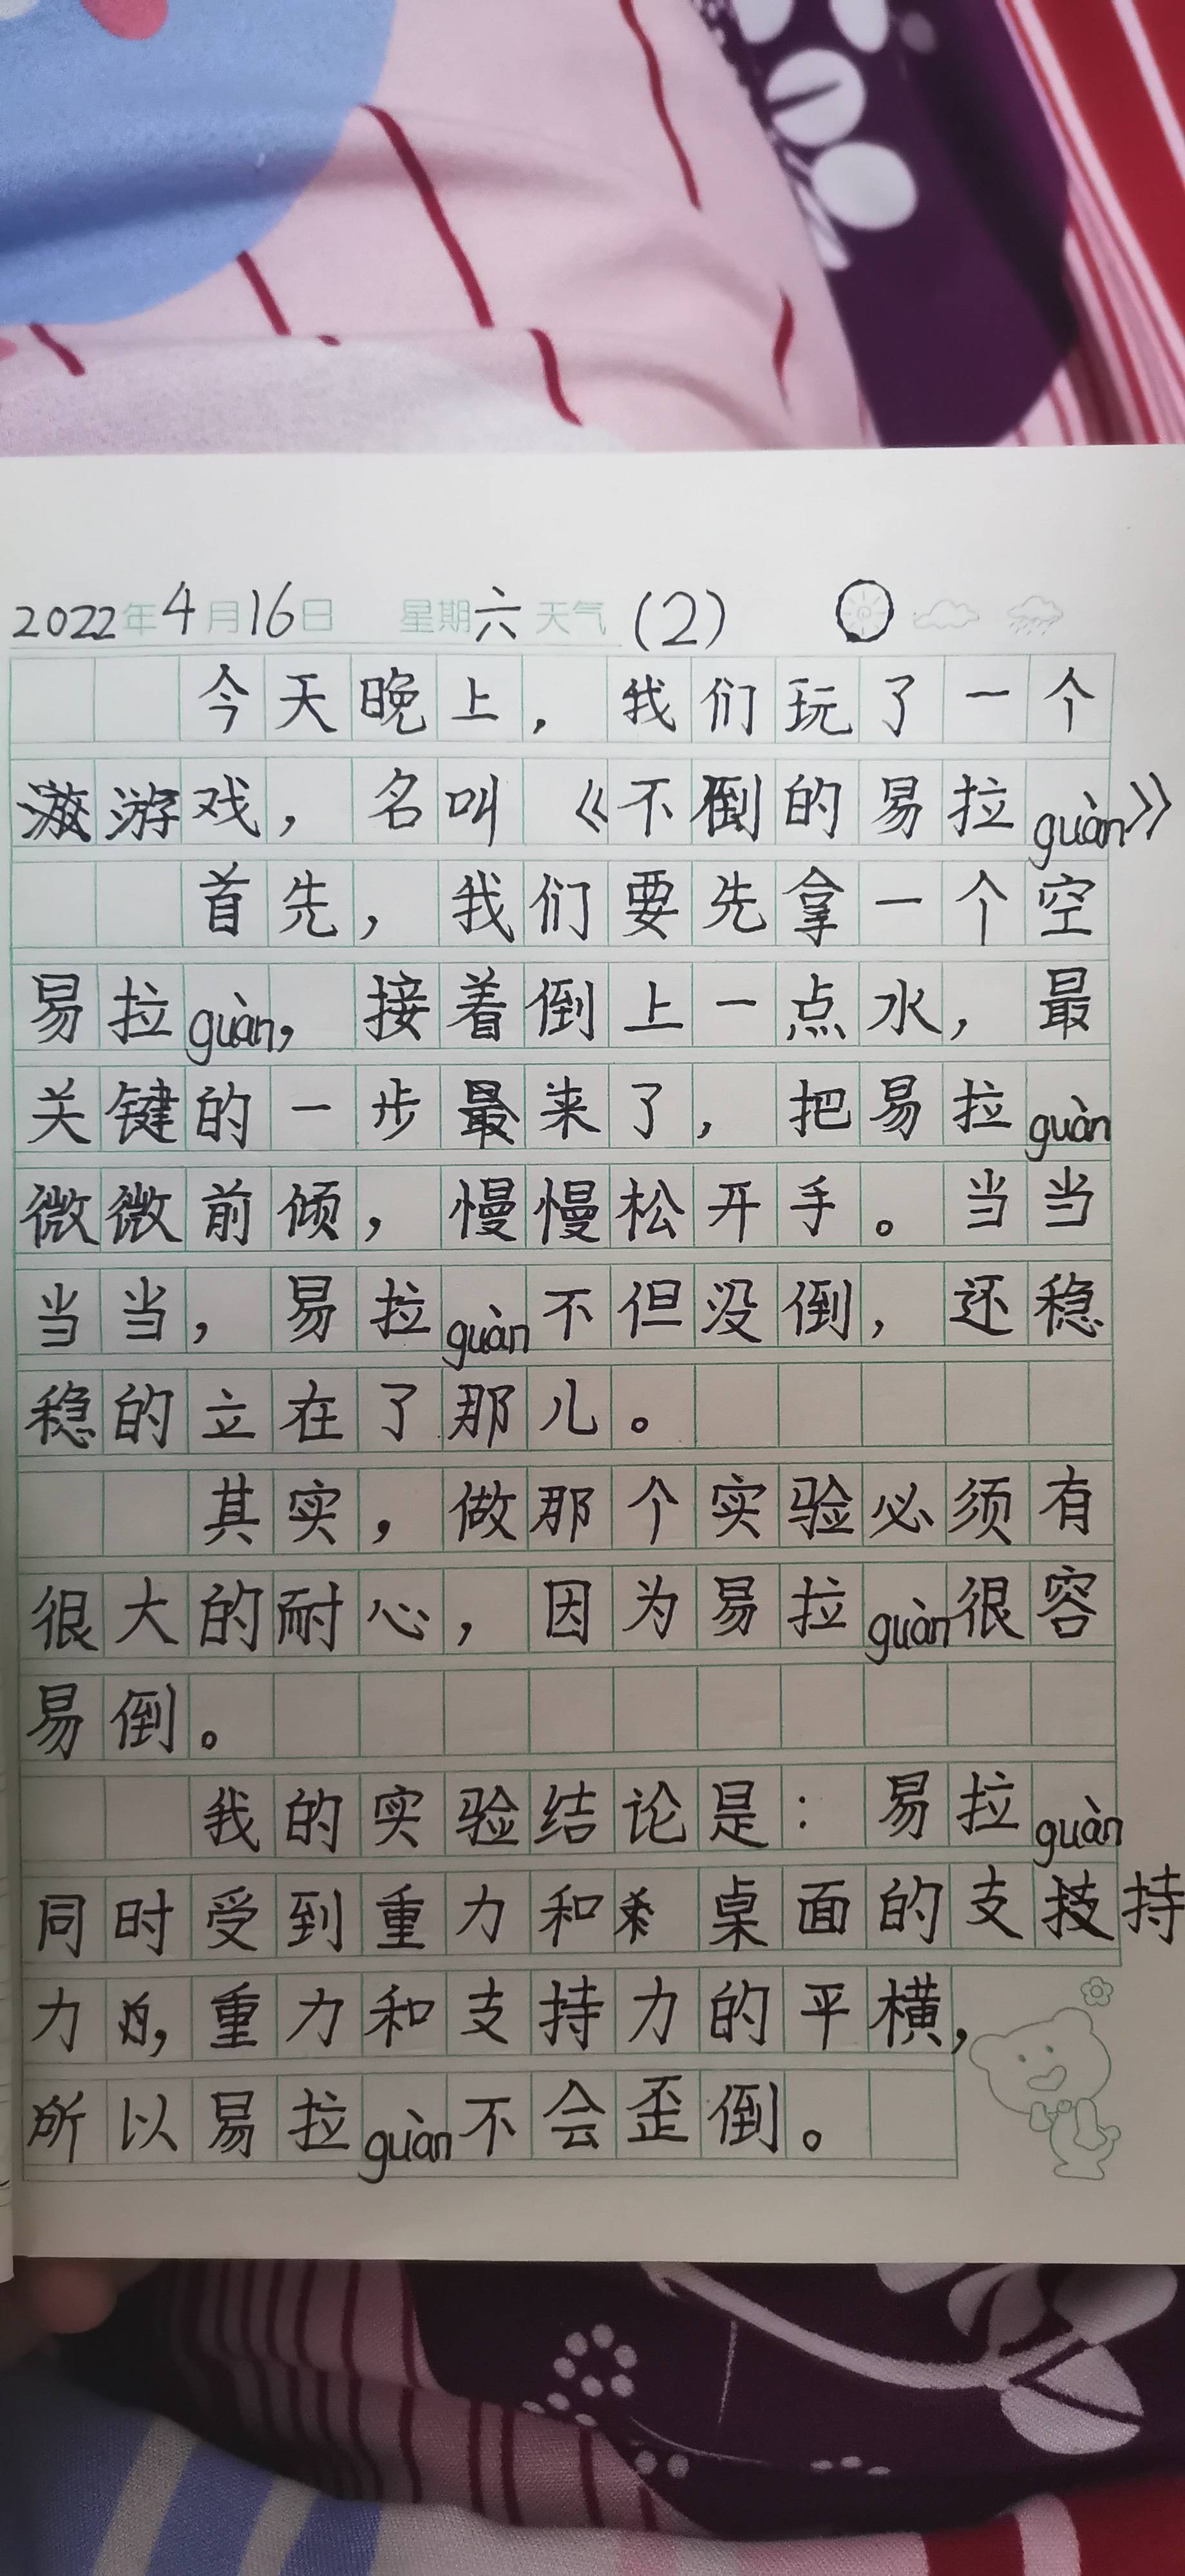 2022年4月16日 星期六 天气 (2)
今天晚上，我们玩了一个
游戏，名叫《不倒的易拉guàn》
首先，我们要先拿一个空
易拉guàn，接着倒上一点水，最
关键的一步来了，把易拉guàn
微微前倾，慢慢松开手。当当
当当，易拉guàn不但没倒，还稳
稳的立在了那儿。
其实，做那个实验必须有
很大的耐心，因为易拉guàn很容
易倒。
我的实验结论是：易拉guàn
同时受到重力和桌面的支持
力，重力和支持力的平横，
所以易拉guàn不会歪倒。